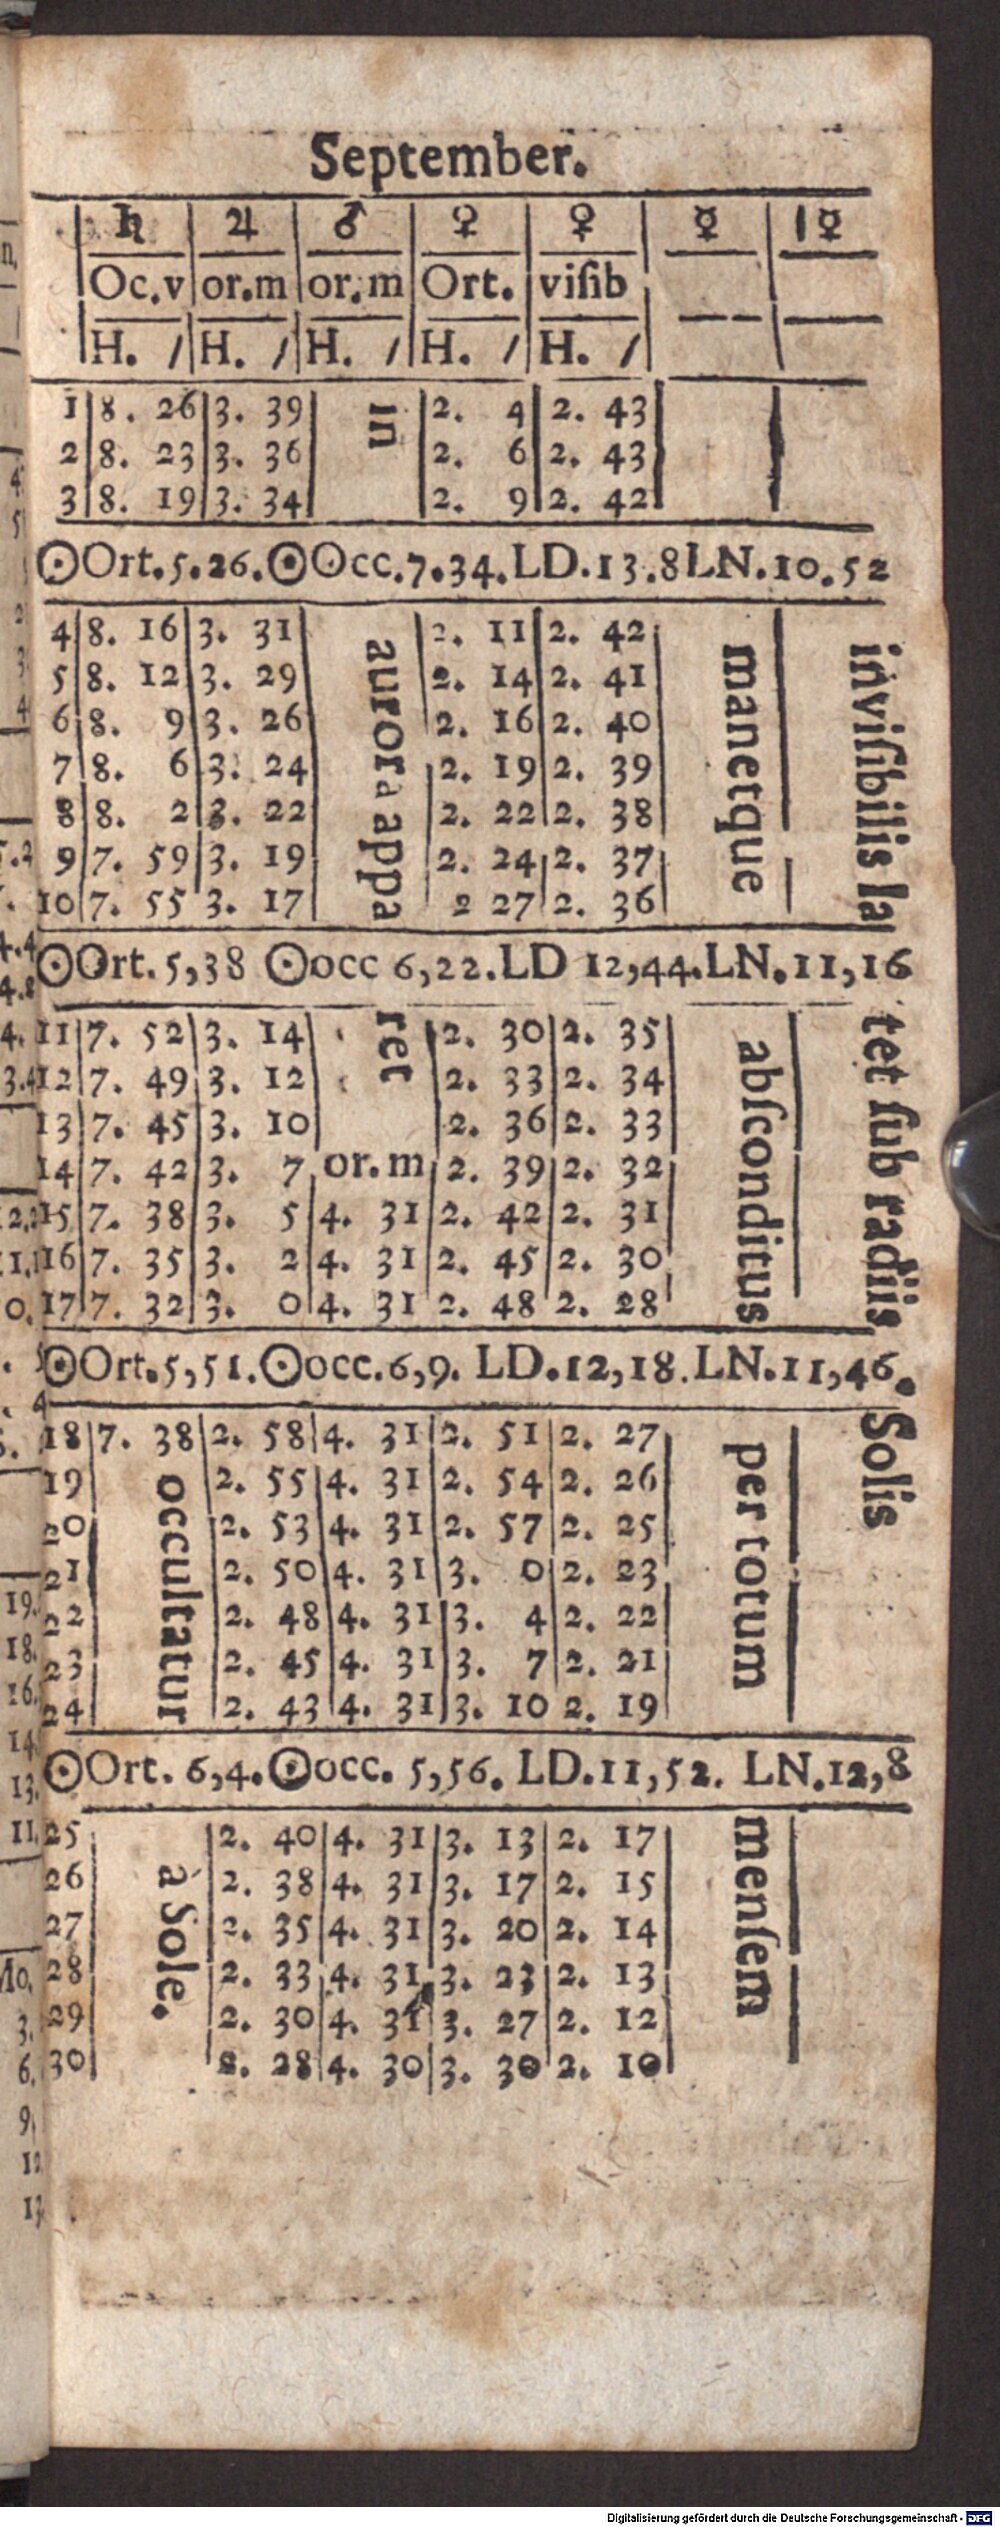 September.
♄ ♃ ♂ ♀ ♀ ☿ ☿
Oc.v or.m or.m Ort. viſib
H. / H. / H. / H. / H. /
1 8. 26 3. 39 in 2. 4 2. 43
2 8. 23 3. 36 2. 6 2. 43
3 8. 19 3. 34 2. 9 2. 42
☉Ort.5.26.☉Occ.7.34.LD.13.8LN.10.52
4 8. 16 3. 31 2. 11 2. 42
5 8. 12 3. 29 2. 14 2. 41
6 8. 9 3. 26 2. 16 2. 40
7 8. 6 3. 24 2. 19 2. 39
8 8. 2 3. 22 2. 22 2. 38
9 7. 59 3. 19 2. 24 2. 37
10 7. 55 3. 17 2 27 2. 36
aurora appa
manetque
inviſibilis la
☉Ort. 5,38 ☉occ 6,22.LD 12,44.LN.11,16
11 7. 52 3. 14 ret 2. 30 2. 35
12 7. 49 3. 12 2. 33 2. 34
13 7. 45 3. 10 2. 36 2. 33
14 7. 42 3. 7 or.m 2. 39 2. 32
15 7. 38 3. 5 4. 31 2. 42 2. 31
16 7. 35 3. 2 4. 31 2. 45 2. 30
17 7. 32 3. 0 4. 31 2. 48 2. 28
abſconditus
tet ſub radiis
☉Ort.5,51.☉occ.6,9. LD.12,18.LN.11,46.
18 7. 38 2. 58 4. 31 2. 51 2. 27
19 2. 55 4. 31 2. 54 2. 26
20 2. 53 4. 31 2. 57 2. 25
21 2. 50 4. 31 3. 0 2. 23
22 2. 48 4. 31 3. 4 2. 22
23 2. 45 4. 31 3. 7 2. 21
24 2. 43 4. 31 3. 10 2. 19
occultatur
per totum
Solis
☉Ort. 6,4.☉occ. 5,56. LD.11,52. LN.12,8
25 2. 40 4. 31 3. 13 2. 17
26 2. 38 4. 31 3. 17 2. 15
27 2. 35 4. 31 3. 20 2. 14
28 2. 33 4. 31 3. 23 2. 13
29 2. 30 4. 31 3. 27 2. 12
30 2. 28 4. 30 3. 30 2. 10
à Sole.
menſem
Digitalisierung gefördert durch die Deutsche Forschungsgemeinschaft - DFG